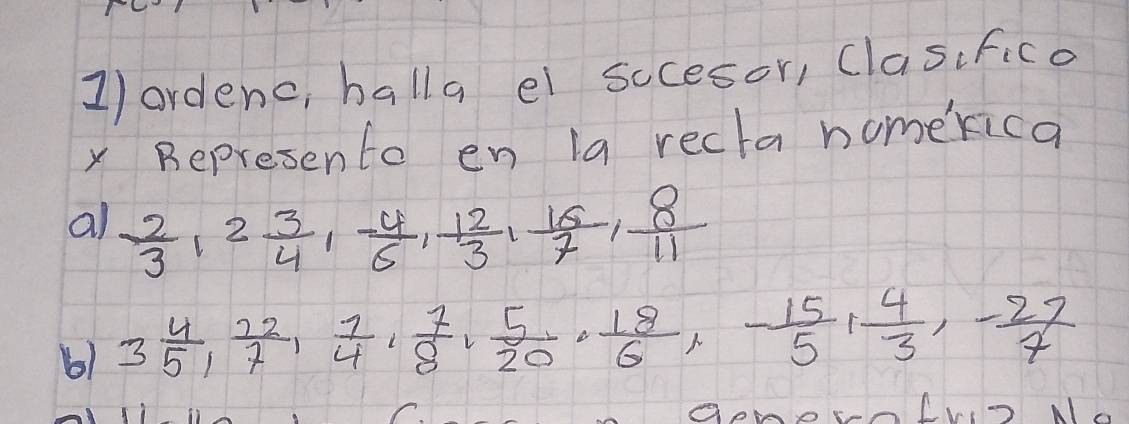 1) ordeno, halla el sucesor, clasifico
y Represento en la recta numérica
a) -2/3, 2 3/4, -4/6, 12/3, 16/7, 8/11
b) 3 4/5, 22/7, 7/4, 7/8, 5/20, 18/6, -15/5, 4/3, -27/7